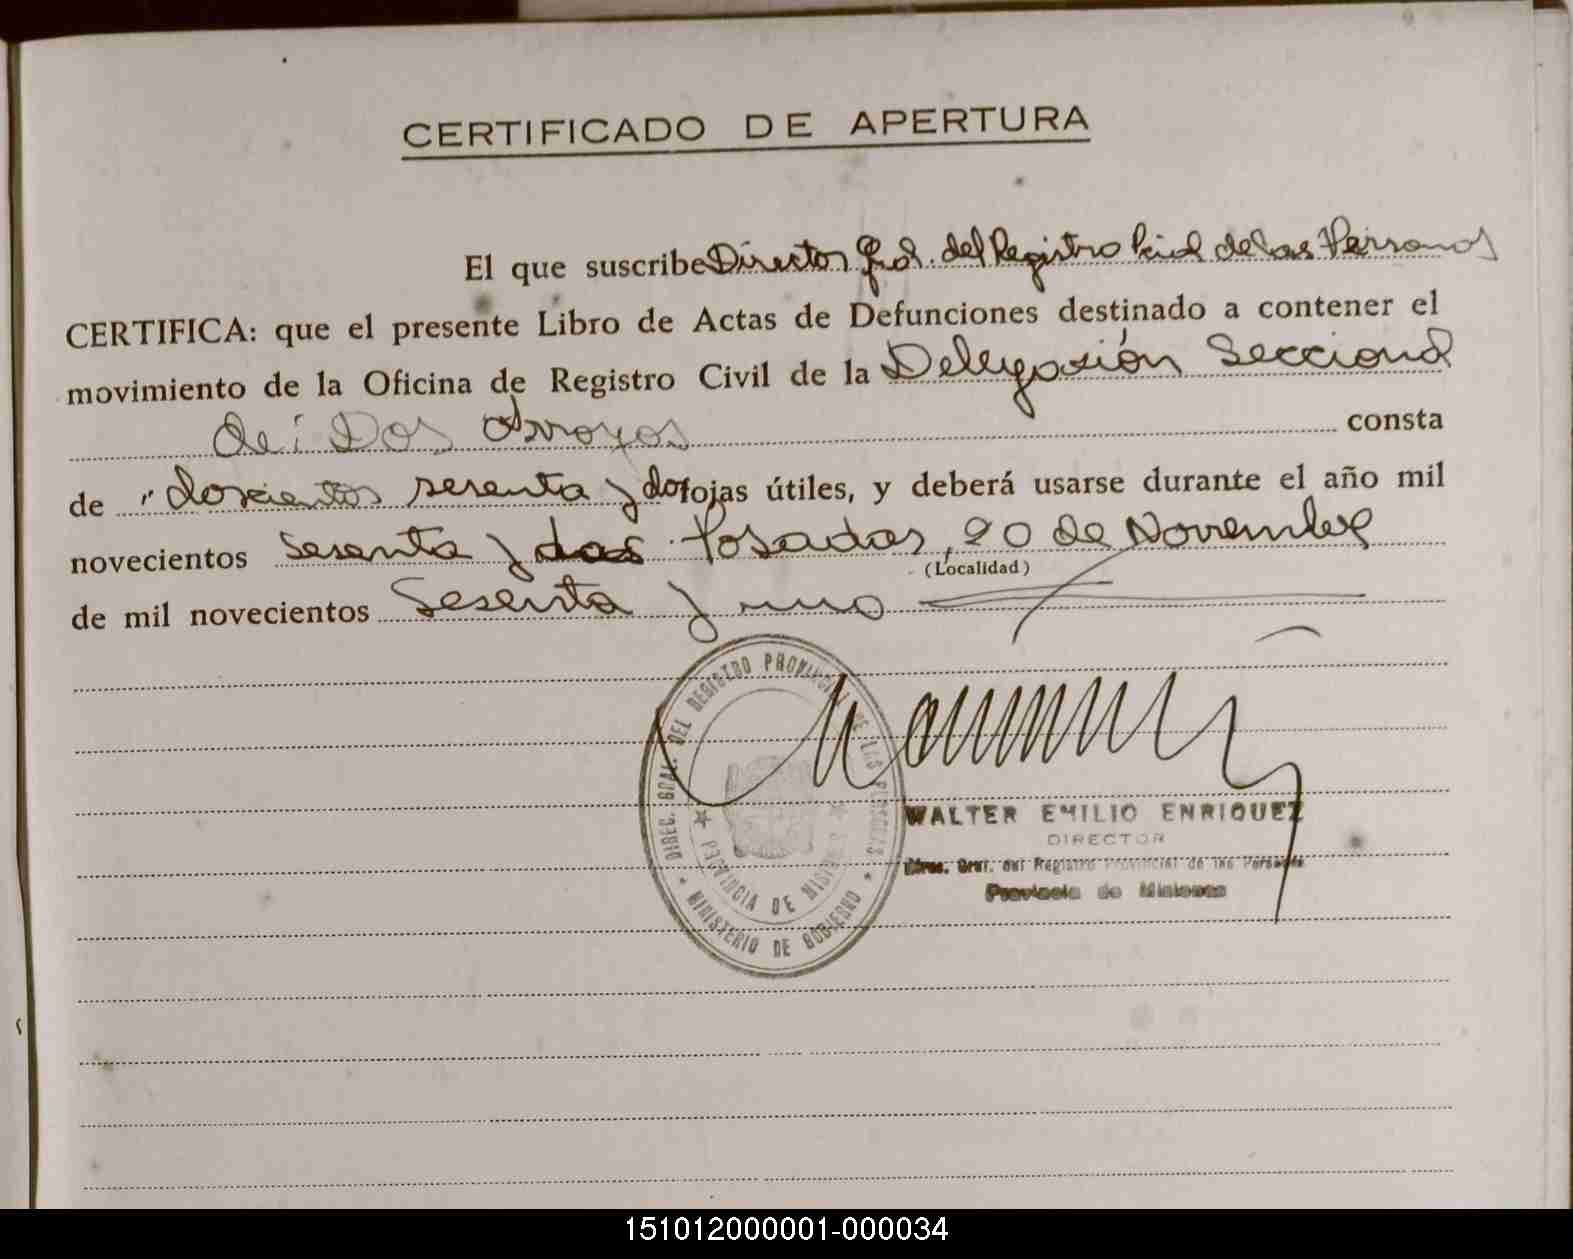 CERTIFICADO DE APERTURA
El que suscribe Director Gral. del Registro Pcial de las Personas
CERTIFICA: que el presente Libro de Actas de Defunciones destinado a contener el
movimiento de la Oficina de Registro Civil de la Delegasión Seccional
de: Dos Arroyos consta
de "doscientos sesenta y dos fojas útiles, y deberá usarse durante el año mil
novecientos sesenta y dos Posadas, 20 de Noviembre
(Localidad)
de mil novecientos Sesenta y uno
DIREC. GRAL. DEL REGISTRO PROVINCIAL DE LAS PERSONAS
★ PROVINCIA DE MISIONES ★
★ MINISTERIO DE GOBIERNO ★
WALTER EMILIO ENRIQUEZ
DIRECTOR
Direc. Gral. del Registro Provincial de las Personas
Provincia de Misiones
151012000001-000034